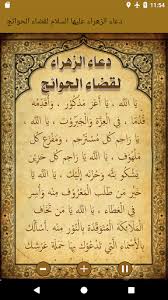 11:54
دعاء الزهراء عليها السلام لقضاء الحوائج
دعاء الزهراء
لقضاء الحوائج
يَا اللَّه ، يَا أَعَزَّ مَذْكُورٍ ، وَأَقْدَمَهُ
قِدَماً فِي الْعِزَّةِ وَالْجَبَرُوتِ ، يَا اللَّه ،
يَا رَاحِمَ كُلِّ مُسْتَرْحِمٍ ، وَمَفْزَعَ كُلِّ
مَلْهُوفٍ ، يَا اللَّه ، يَا رَاحِمَ كُلِّ حَزِينٍ
يَشْكُو بَثَّهُ وَحُزْنَهُ إِلَيْهِ ، يَا اللَّه ، يَا
خَيْرَ مَنْ طُلِبَ الْمَعْرُوفُ مِنْهُ وَأَسْرَعَهُ
فِي الْعَطَاءِ ، يَا اللَّه ، يَا مَنْ تَخَافُ
بِالْأَسْمَاءِ الَّتِي تَدْعُوكَ بِهَا حَمَلَةُ عَرْشِكَ